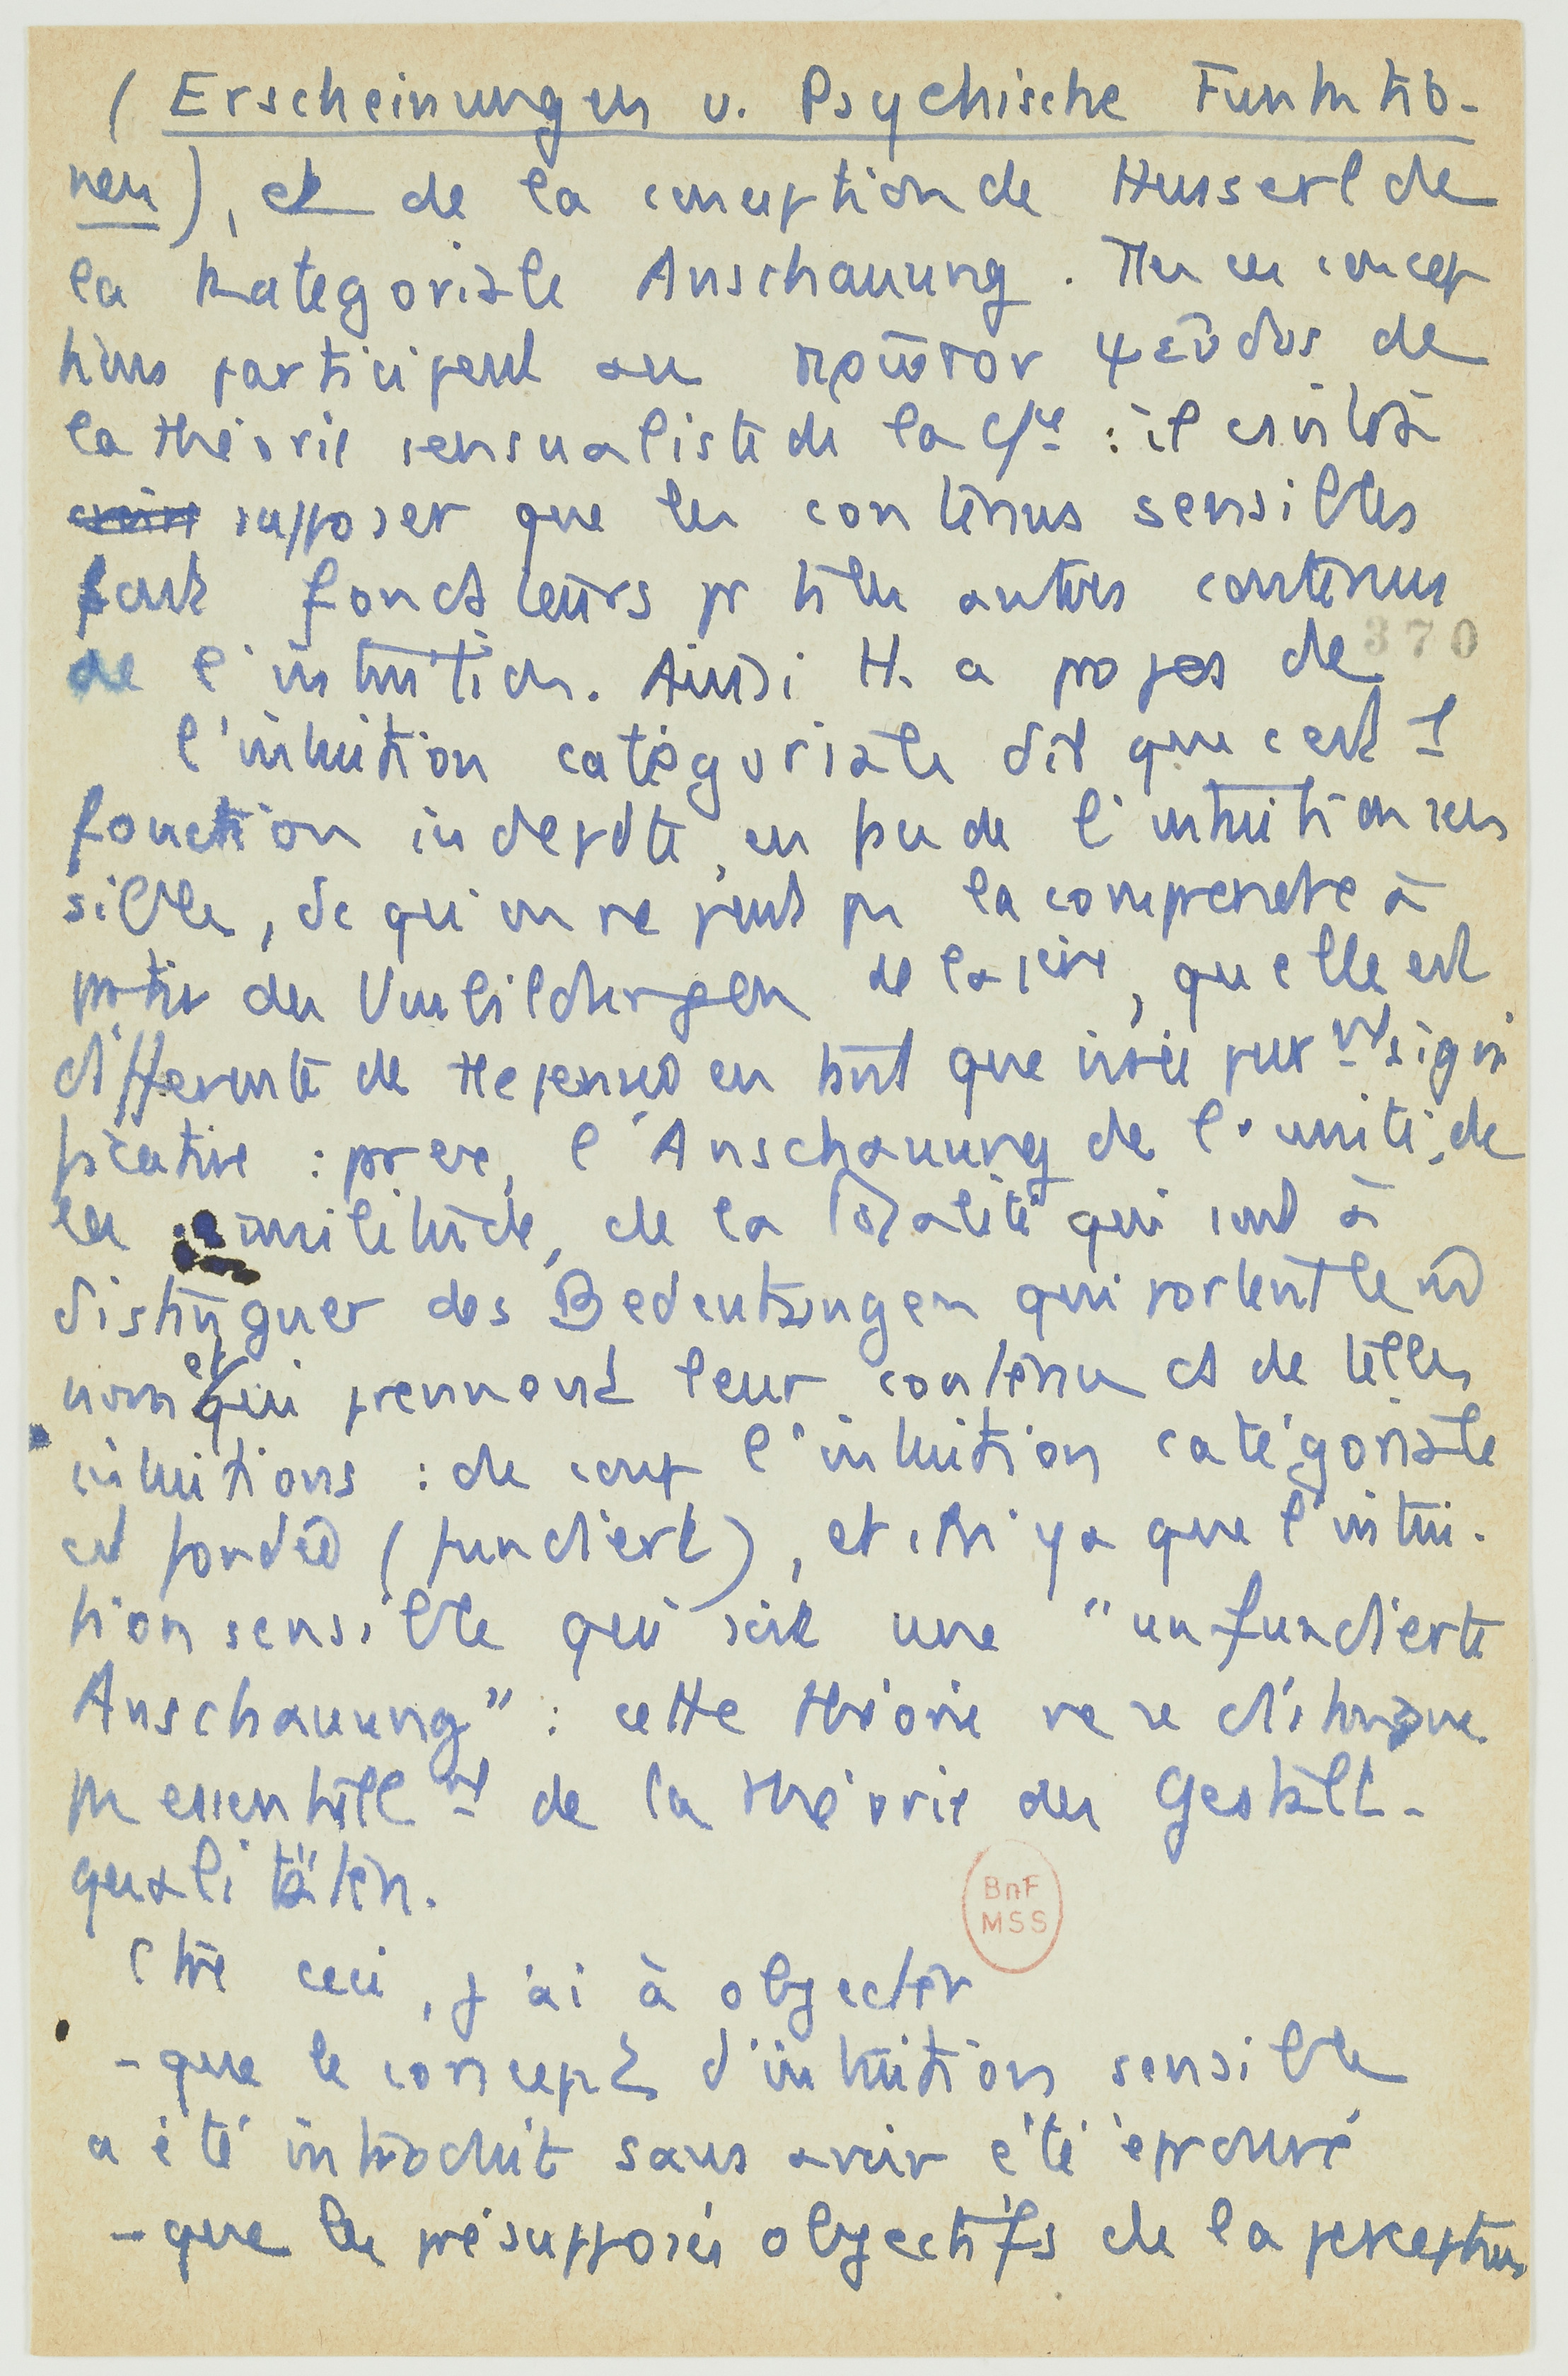 ( Erscheinungen u. Psychische Funktio-
nen), et de la conception de Husserl de
la Kategoriale Anschauung. Ttes ces concep
tions participent au πρῶτον ψεῦδος de
la théorie sensualiste de la cf ce : il consiste à
supposer que les contenus sensibles
sont fondateurs pr ts les autres contenus
de l'intuition. Ainsi H. a propos de
370
l'intuition catégoriale dit que c'est 1
fonction indepdte, en fce de l'intuition sen
sible, dc qu'on ne peut pas la comprendre à
partir des Umbildungen de la 1ère, qu'elle est
différente de tte pensée en tant que visée purmt signi
ficative : par ex, l'Anschauung de l'unité, de
la similitude, de la totalité qui sont à
distinguer des Bedeutungen qui portent le m̂
nom et qui prennent leur contenu ds de telles
intuitions : du coup l'intuition catégoriale
est fondée (fundiert), et il n'y a que l'intui-
tion sensible qui soit une "unfundierte
Anschauung" : cette théorie ne se distingue
pas essentiellmt de la théorie des Gestalt-
qualitäten.
Ctre ceci, j'ai à objecter
- que le concept d'intuition sensible
a été introduit sans avoir été éprouvé
- que les présupposés objectifs de la perception
BnF
MSS